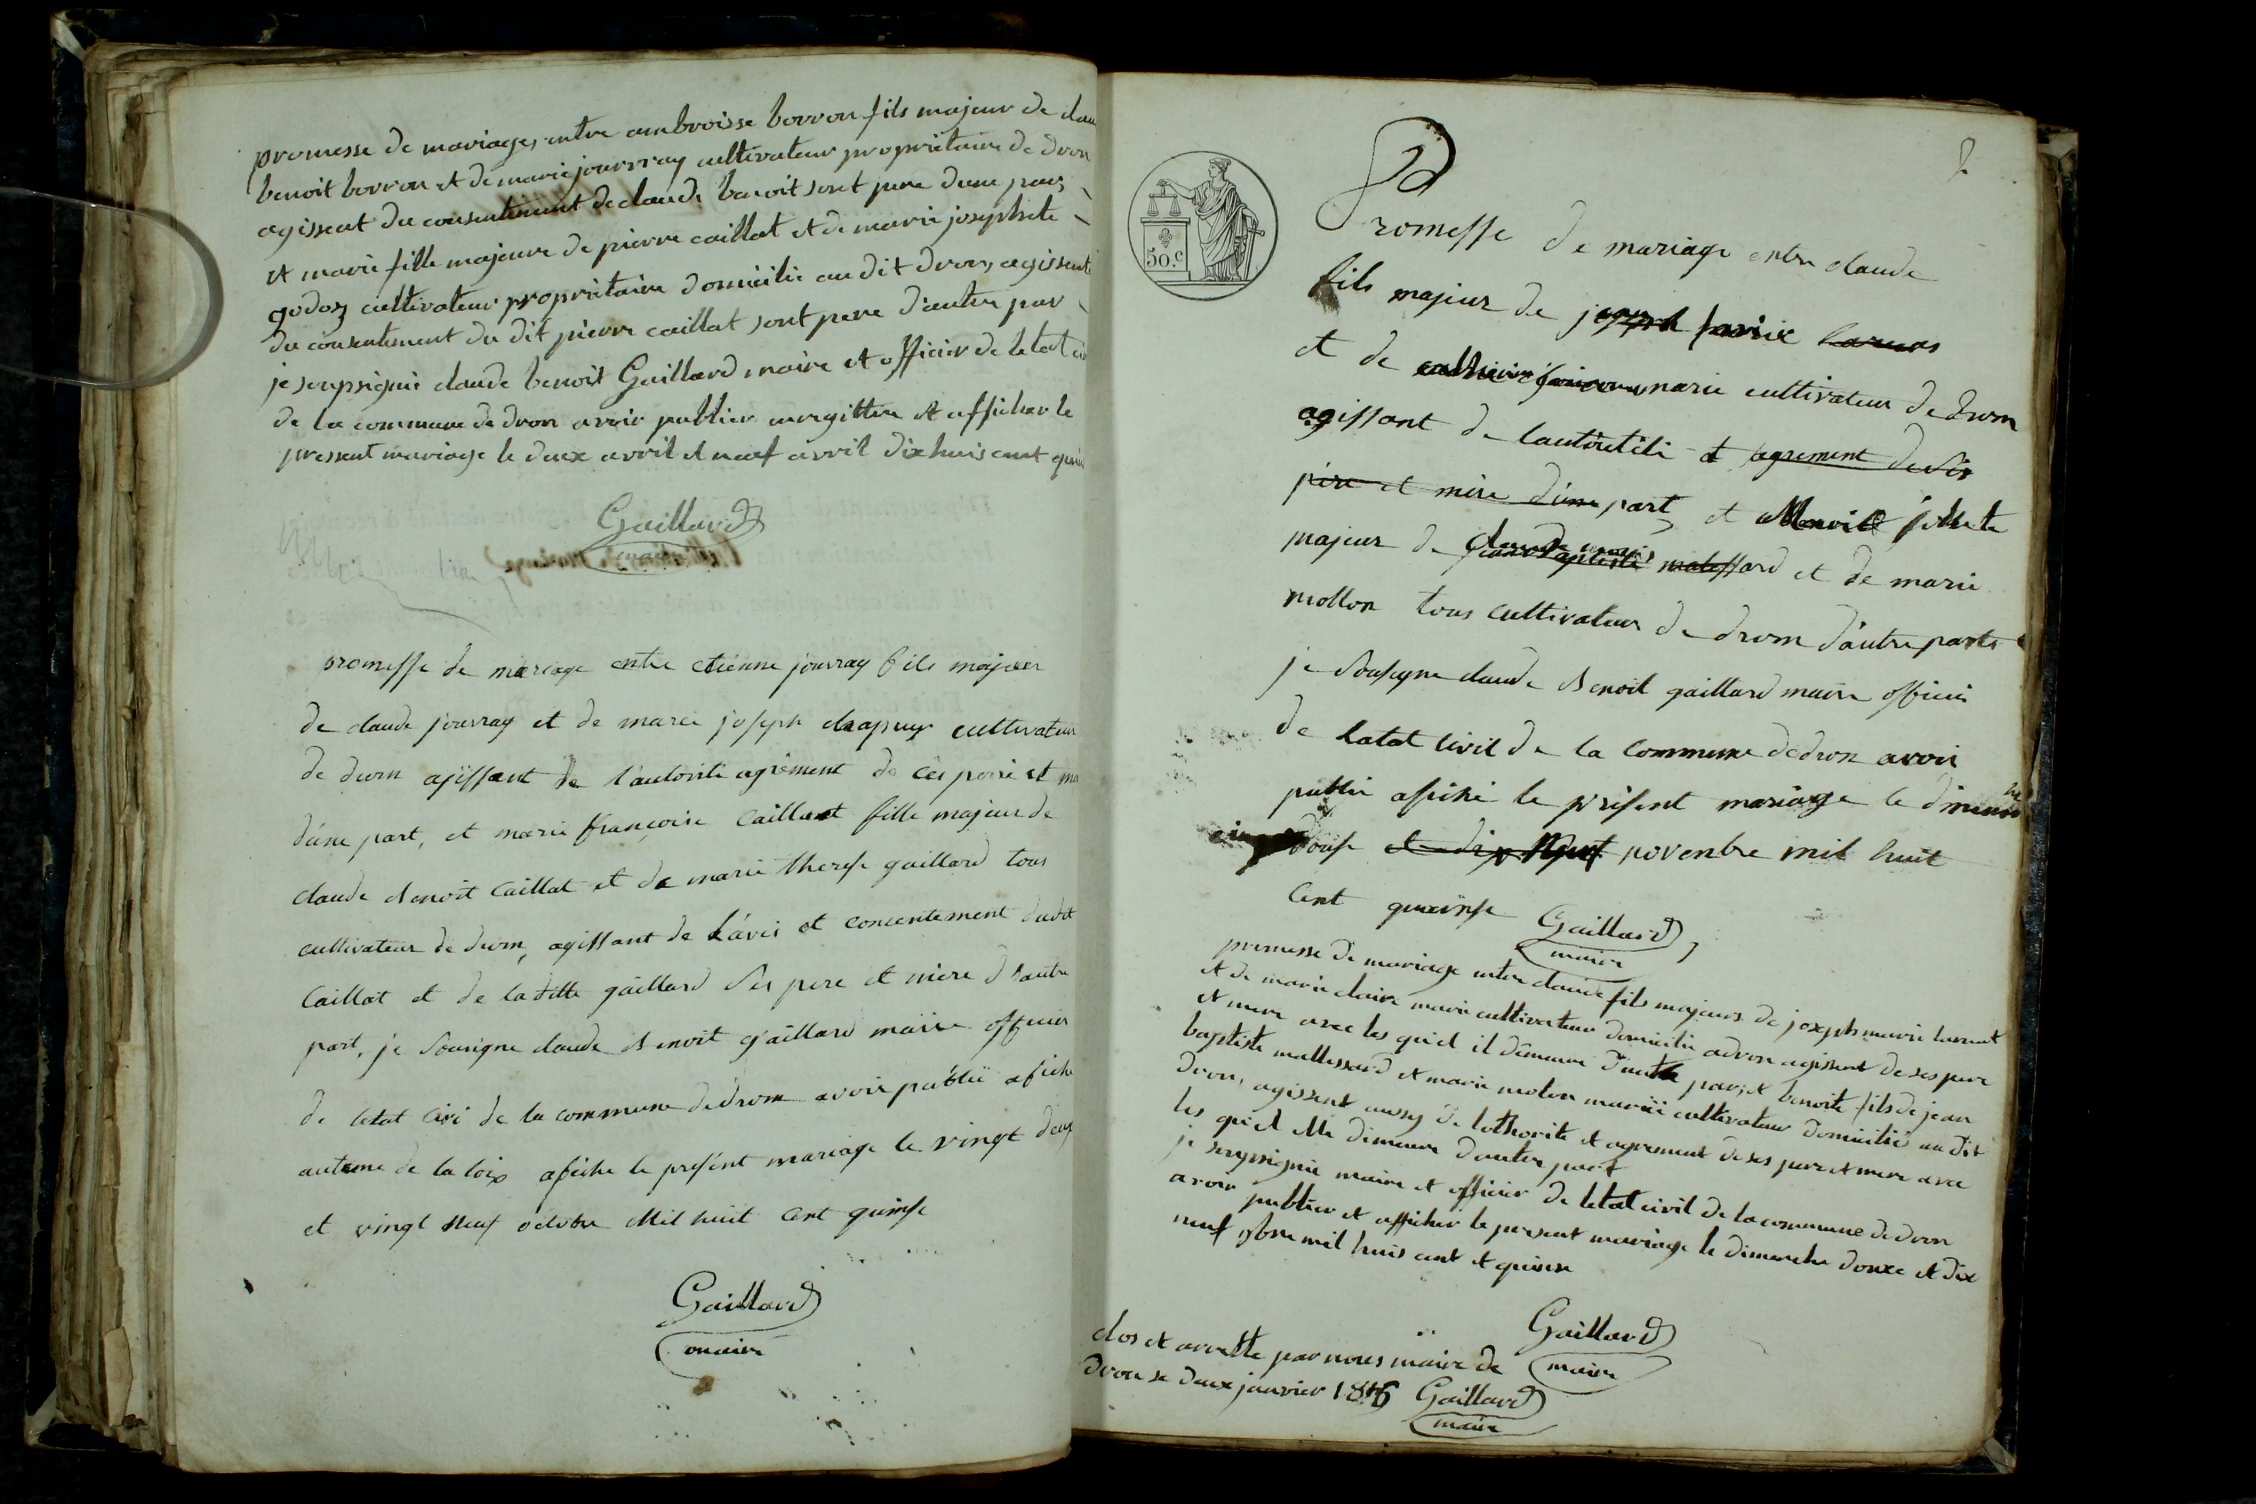 promesse de mariage, entre ambroisse borron fils majeur de clau
benoit borron et de marie jourvray cultivateur proprietaire de dron
agissent du consentement de claude benoit sont pere dune pars
et marie fille majeure de pierre caillat et de marie josephete
godoz cultivateur proprietaire domicilie au dit dron, agissent
du consentement du dit pierre caillat sont pere d'autre par
je soupsignie claude benoit Gaillard maire et officier de letat ci
de la commune de dron avoir publier aregittre et afficher le
pressent mariage le deux avril et neuf avril dix huis cent quin
Gaillard
maire
promesse de mariage entre etienne jouvray fils majeur
de claude jouvray et de marie joseph chapuy cultivateur
de drom ajissant de l'autorité agrément de ces pere et me
d'une part, et marie françoise Caillat fille majeur de
claude Benoit Caillat et de marie therese gaillard tous
cultivateur de drom, agissant de l'avis et concentement dudit
Caillat et de la ditte gaillard ses pere et mere d'autre
part, je Sousigne claude Benoit gaillard maire officier
de letat civi de la commune de drom avoir publié afiche
auteme de la loix afiche le présent mariage le vingt deux
et vingt neuf octobre Mil huit Cent quinse
Gaillard
maire
2
50.c
Promesse de mariage entre claude
fils majeur de joseph marie
et de marie cultivateur de drom
agissant de lautoritée et agrement de ses
pere et mere d'une part, et Benoite fille
majeur de jean Baptiste malessard et de marie
mollon tous cultivateur de drom d'autre parts
je Sousigne claude Benoit gaillard maire officié
de latat civil de la commune de dron avoir
publié afiché le présent mariage le dimenche
douse et dix Neuf novenbre mil huit
Cent quinse Gaillard
maire
promesse de mariage entre claude fils majeur de joseph marie
et de marie claire marie cultivateur domicilie a dron agissent de ses pere
et mere avec les quel il demeure d'une par; et benoite fils de jean
baptiste mallessard et marie molon marié cultivateur domicilié au dit
dron, agissent aussy de lothorite et agrement de ses pere et mere avec
les quel elle dimeure d'autre part
je soupsignie maire et officier de letat civil de la commune de dron
avoir publier et afficher le persent mariage le dimenche douxe et dix
neuf 9bre mil huis cent et quinse
Gaillard
maire
clos et arrette par nous maire de
dron le deux janvier 1816 Gaillard
maire